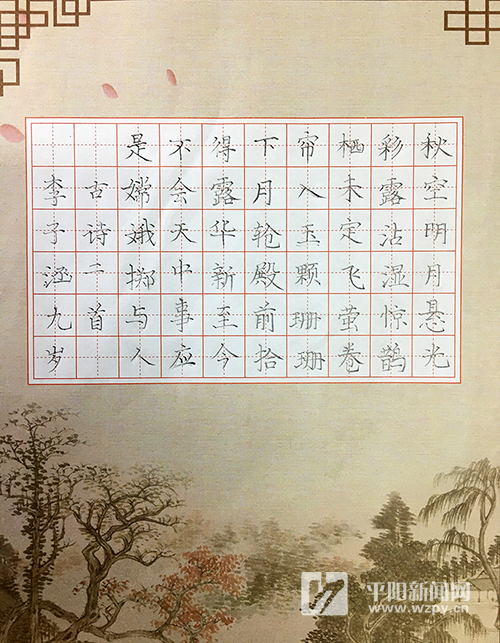 秋空明月悬光
彩露沾湿惊鹊
栖未定飞萤卷
帘入玉颗珊珊
下月轮殿前拾
得露华新至今
不会天中事应
是嫦娥掷与人
古诗二首
李子涵九岁
平阳新闻网
www.wzpy.cn